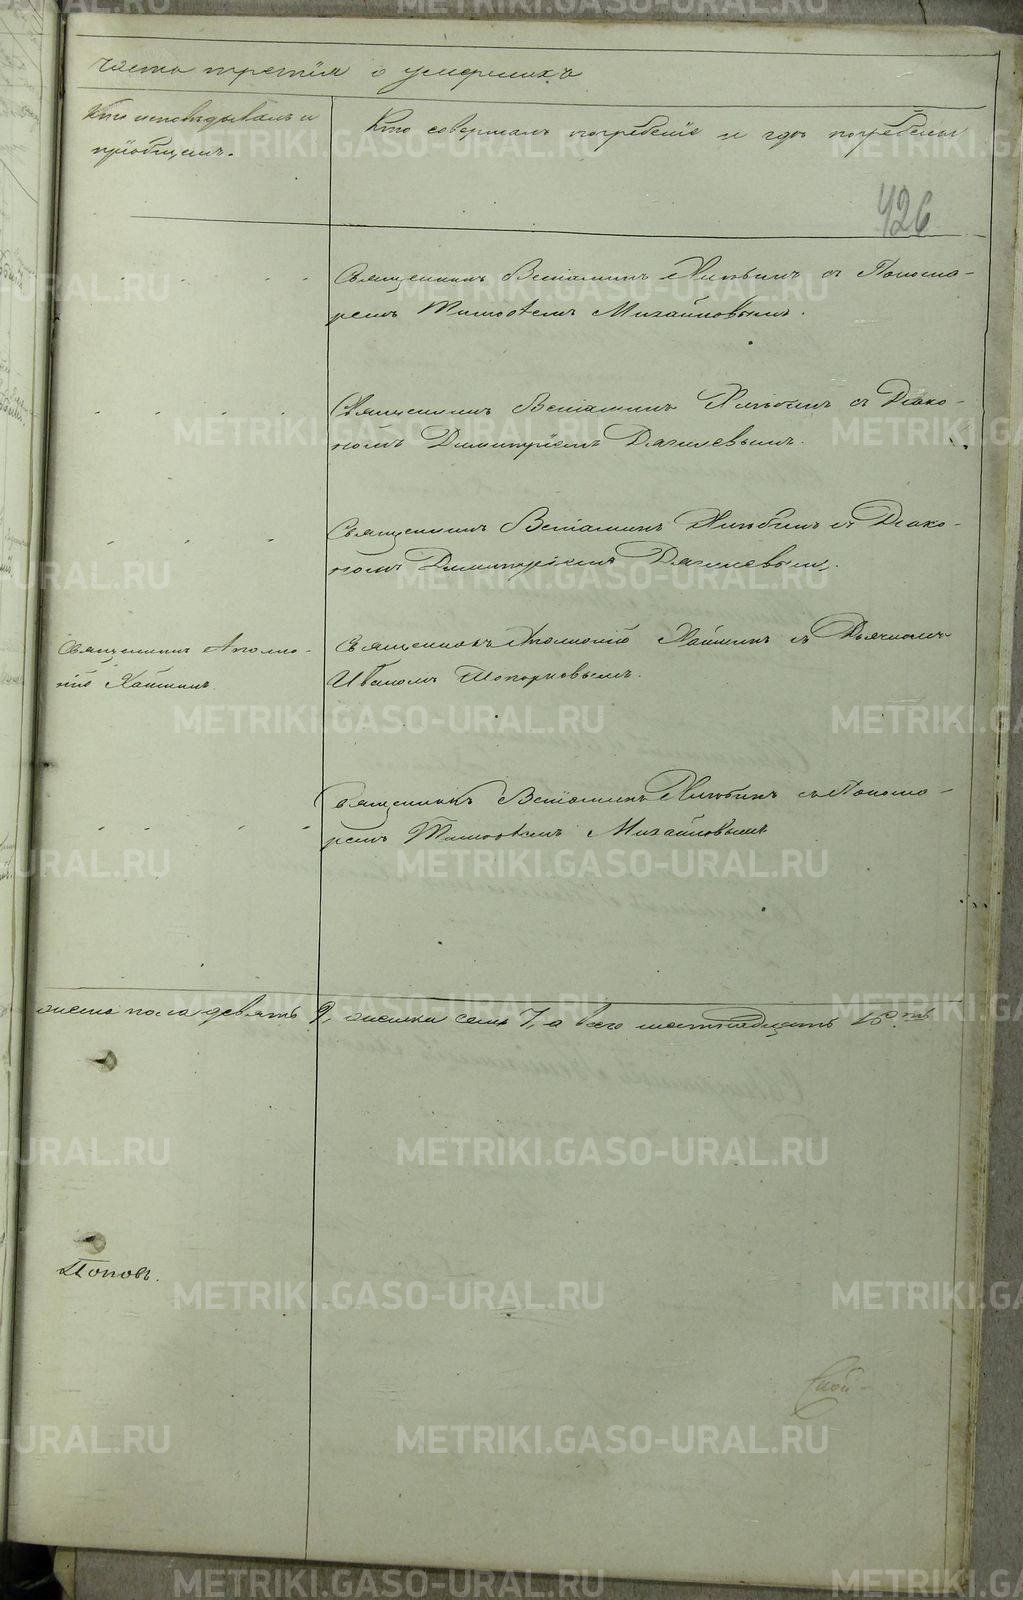 часть третія о умершихъ
Кто исповѣдывалъ и
пріобщалъ.
Кто совершалъ погребеніе и гдѣ погребены
426
Священникъ Веніаминъ с Понома-
ремъ Тимоѳеемъ Михайловымъ.
Священникъ Веніаминъ съ Діако-
номъ Димитріемъ Дягилевымъ.
Священникъ Веніаминъ съ Діако-
номъ Димитріемъ Дягилевымъ.
Священникъ Аполло-
ній
Священникъ Аполлоній съ Дьячкомъ
Иваномъ Топорковымъ.
Священникъ Веніаминъ съ Понома-
ремъ Тимоѳеемъ Михайловымъ
пола девять 9, женска семь 7, а всего шестьнадцать 16ть
Поповъ.
METRIKI.GASO-URAL.RU